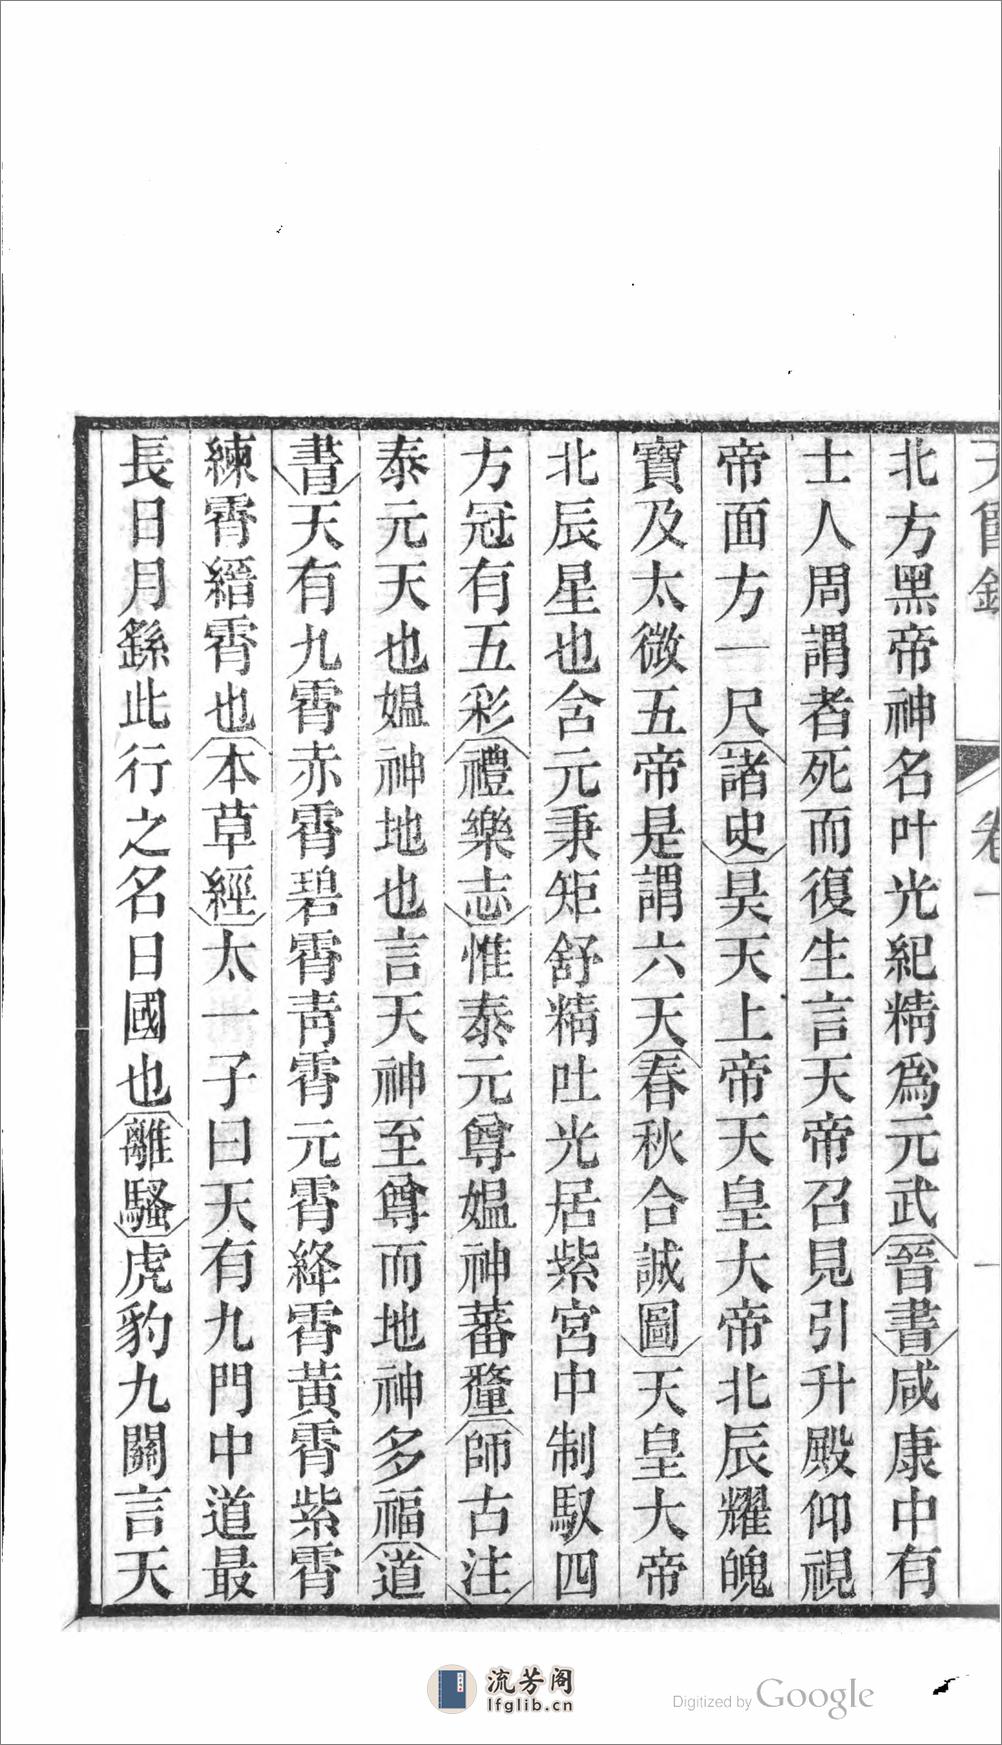 卷一
一
北方黑帝神名叶光紀精爲元武晉書咸康中有
士人周謂者死而復生言天帝召見引升殿仰視
帝面方一尺諸史昊天上帝天皇大帝北辰耀魄
寶及太微五帝是謂六天春秋合誠圖天皇大帝
北辰星也含元秉矩舒精吐光居紫宮中制馭四
方冠有五彩禮樂志惟泰元尊媼神蕃釐師古注
泰元天也媼神地也言天神至尊而地神多福道
書天有九霄赤霄碧霄靑霄元霄絳霄黃霄紫霄
練霄縉霄也本草經太一子曰天有九門中道最
長日月繇此行之名日國也離騷虎豹九關言天
流芳阁
lfglib.cn
Digitized by Google